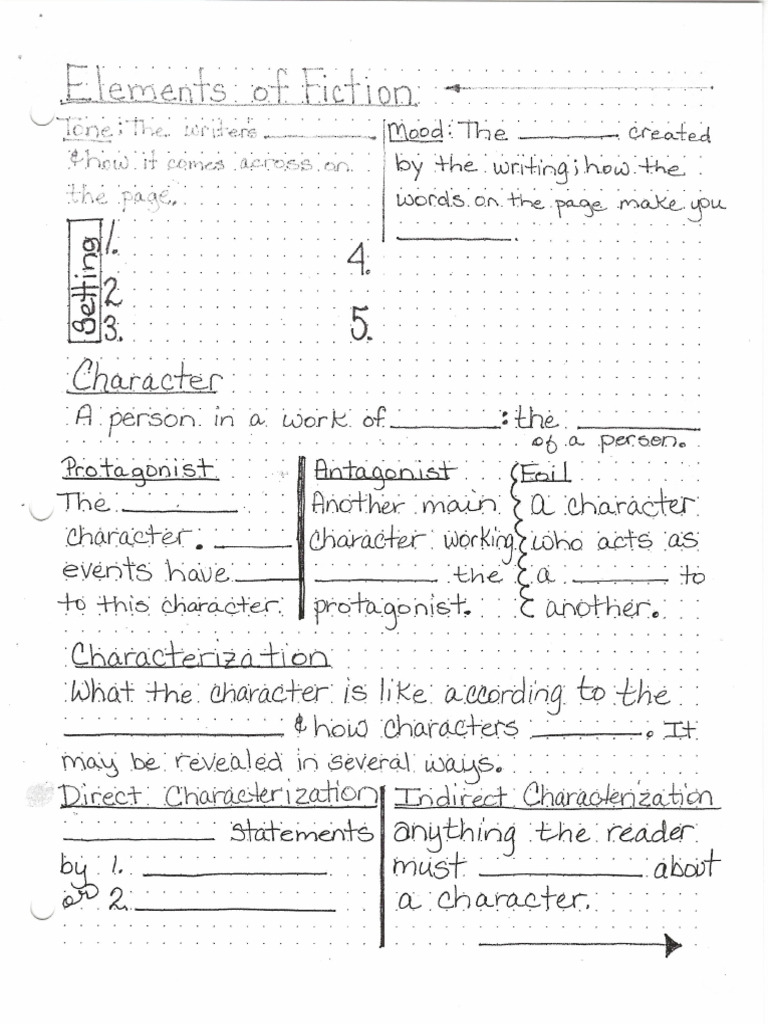 Elements of Fiction
Tone: The writers ________
& how it comes across on
the page.
Mood: The ________ created
by the writing; how the
words on the page make you
________.
Setting
1.
2
3.
4.
5.
Character
A person in a work of ________: the ________
of a person.
Protagonist
The ________
character. ________
events have ________
to this character.
Antagonist
Another main
character working
________ the
protagonist.
Foil
a character
who acts as
a ________ to
another.
Characterization
What the character is like according to the
________ & how characters ________. It
may be revealed in several ways.
Direct Characterization
________ statements
by 1. ________
or 2. ________
Indirect Characterization
anything the reader
must ________ about
a character.